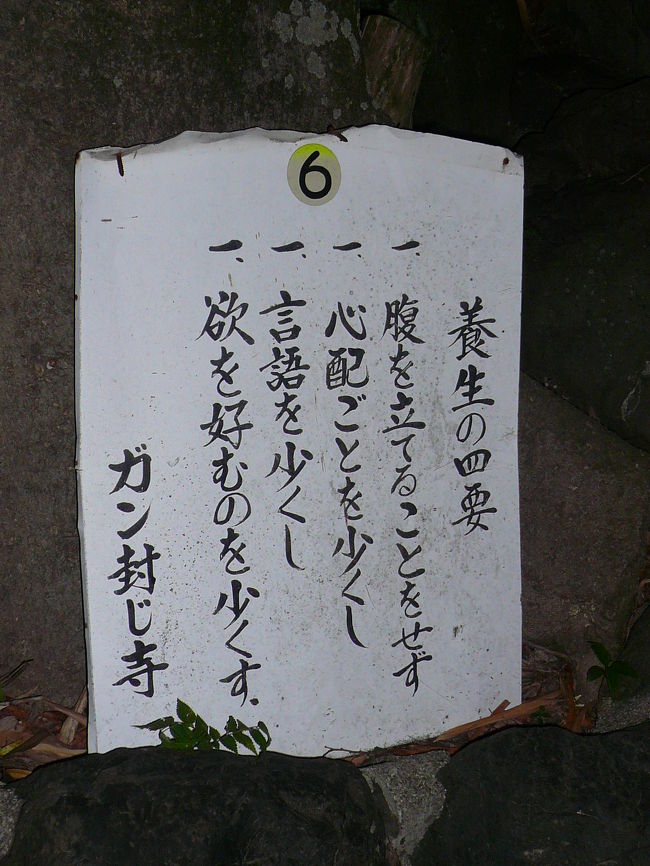 6
養生の四要
一、腹を立てることをせず
一、心配ごとを少くし
一、言語を少くし
一、欲を好むのを少くす.
ガン封じ寺